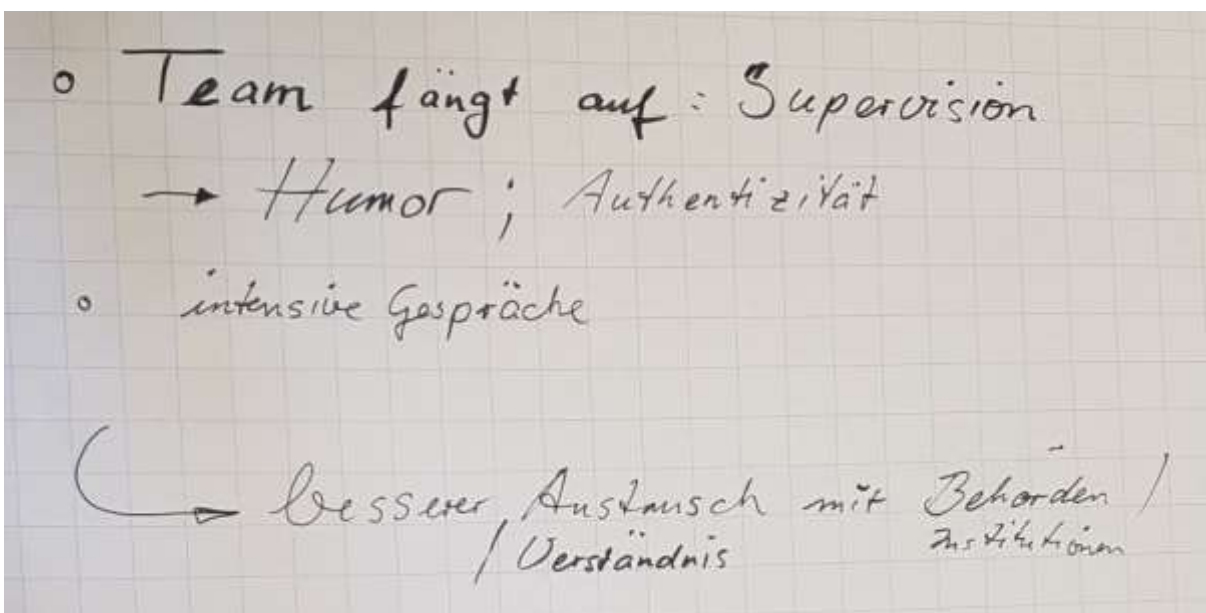 ◦ Team fängt auf : Supervision
→ Humor ; Authentizität
◦ intensive Gespräche
→ besserer Austausch mit Behörden /
/ Verständnis Institutionen